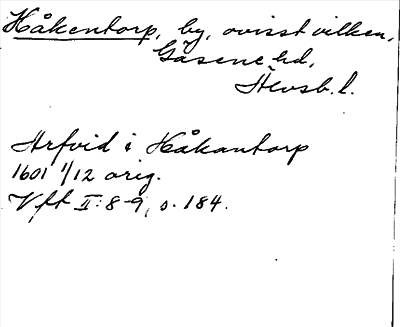 Håkentorp, by, ovisst vilken,
Gäsene hd,
Älvsb. l.
Arfvid i Håkantorp
1601 1/12 orig.
Vft II: 8-9, s. 184.